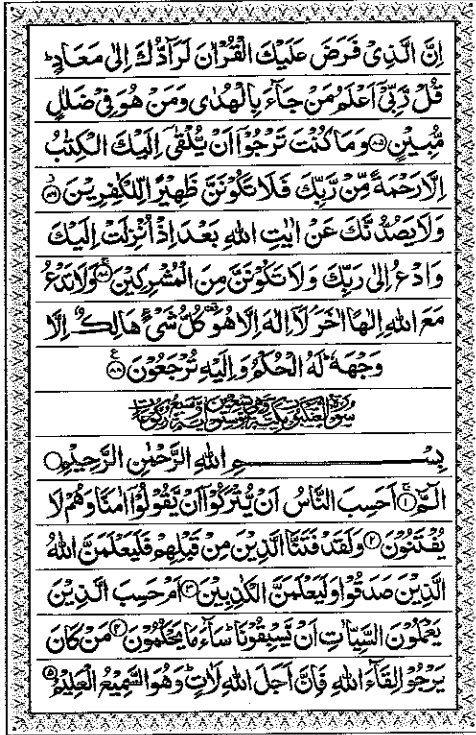 اِنَّ الَّذِیْ فَرَضَ عَلَیْكَ الْقُرْاٰنَ لَرَآدُّكَ اِلٰی مَعَادٍؕ
قُلْ رَّبِّیْۤ اَعْلَمُ مَنْ جَآءَ بِالْهُدٰی وَمَنْ هُوَ فِیْ ضَلٰلٍ
مُّبِیْنٍ۝۸۵ وَمَا كُنْتَ تَرْجُوْۤا اَنْ یُّلْقٰۤی اِلَیْكَ الْكِتٰبُ
اِلَّا رَحْمَةً مِّنْ رَّبِّكَ فَلَا تَكُوْنَنَّ ظَهِیْرًا لِّلْكٰفِرِیْنَ۝۸۶
وَلَا یَصُدُّنَّكَ عَنْ اٰیٰتِ اللّٰهِ بَعْدَ اِذْ اُنْزِلَتْ اِلَیْكَ
وَادْعُ اِلٰی رَبِّكَ وَلَا تَكُوْنَنَّ مِنَ الْمُشْرِكِیْنَ۝۸۷ وَلَا تَدْعُ
مَعَ اللّٰهِ اِلٰهًا اٰخَرَ لَاۤ اِلٰهَ اِلَّا هُوَ كُلُّ شَیْءٍ هَالِكٌ اِلَّا
وَجْهَهٗؕ لَهُ الْحُكْمُ وَاِلَیْهِ تُرْجَعُوْنَ۝۸۸
بِسْمِ اللّٰهِ الرَّحْمٰنِ الرَّحِیْمِ
الٓمّٓ۝۱ اَحَسِبَ النَّاسُ اَنْ یُّتْرَكُوْۤا اَنْ یَّقُوْلُوْۤا اٰمَنَّا وَهُمْ لَا
یُفْتَنُوْنَ۝۲ وَلَقَدْ فَتَنَّا الَّذِیْنَ مِنْ قَبْلِهِمْ فَلَیَعْلَمَنَّ اللّٰهُ
الَّذِیْنَ صَدَقُوْا وَلَیَعْلَمَنَّ الْكٰذِبِیْنَ۝۳ اَمْ حَسِبَ الَّذِیْنَ
یَعْمَلُوْنَ السَّیِّاٰتِ اَنْ یَّسْبِقُوْنَاؕ سَآءَ مَا یَحْكُمُوْنَ۝۴ مَنْ كَانَ
یَرْجُوْا لِقَآءَ اللّٰهِ فَاِنَّ اَجَلَ اللّٰهِ لَاٰتٍؕ وَهُوَ السَّمِیْعُ الْعَلِیْمُ۝۵